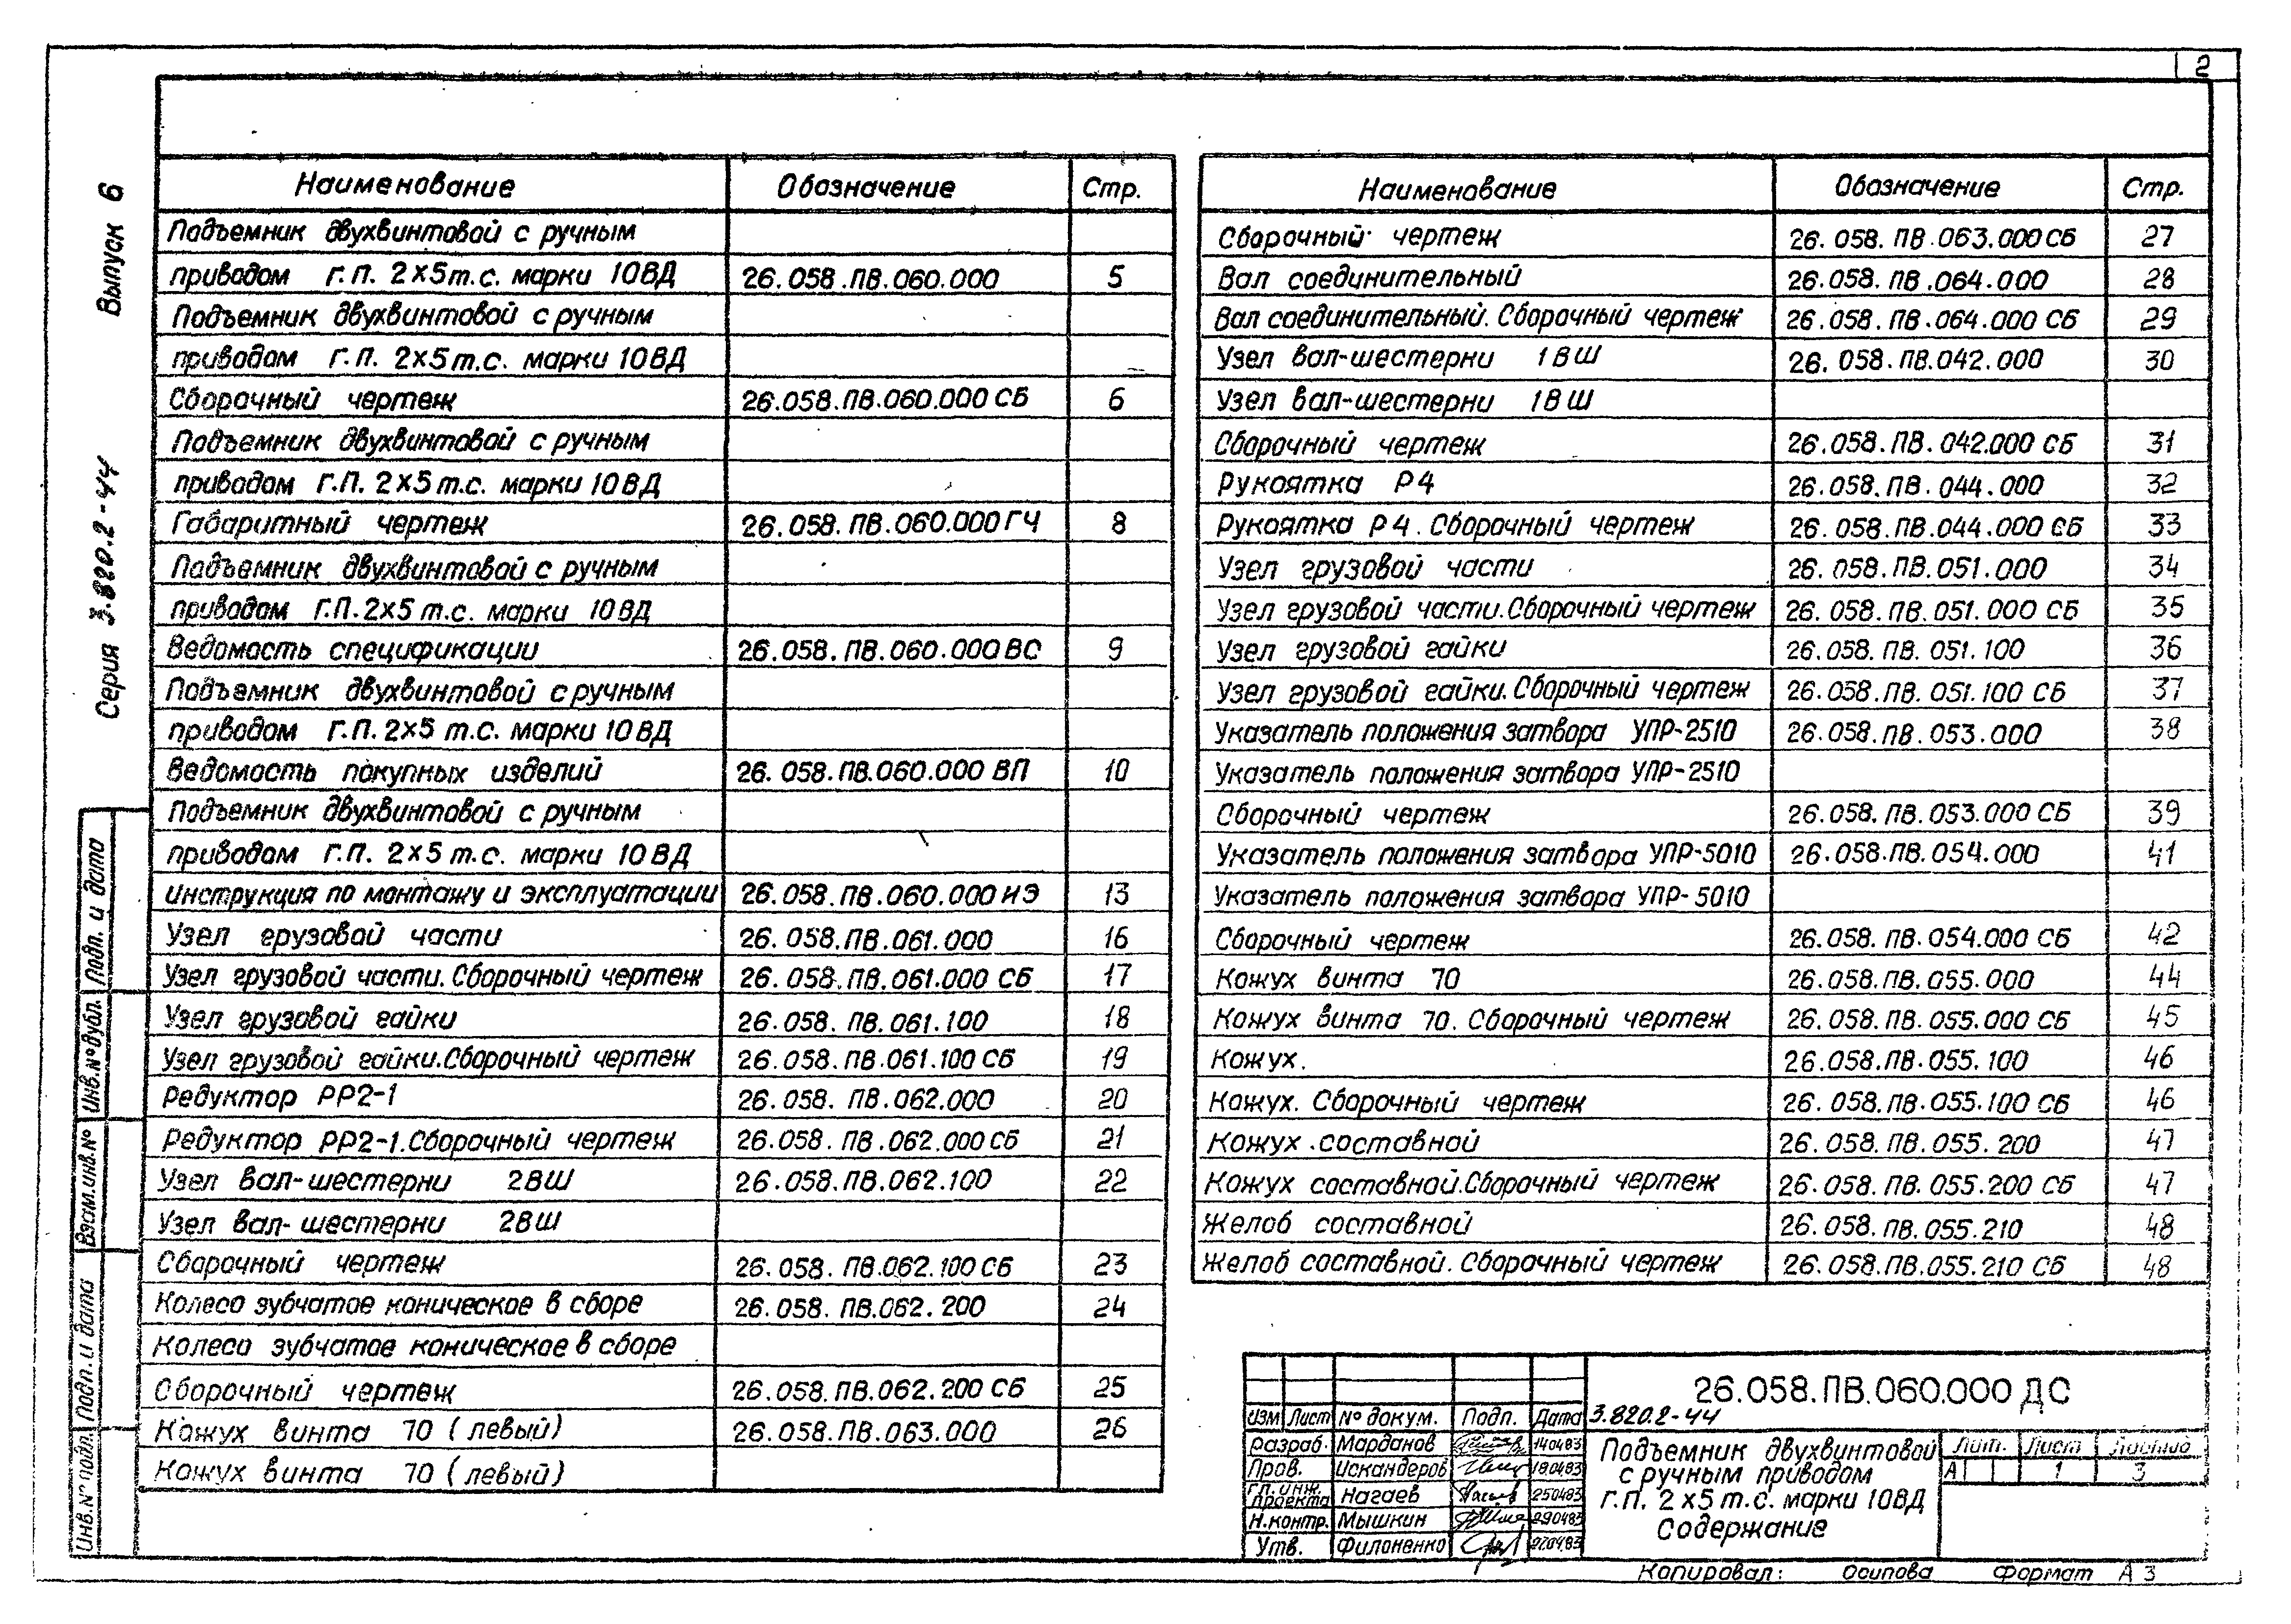 2
Выпуск 6
Серия 3.820.2-44
Наименование Обозначение Стр.
Подъемник двухвинтовой с ручным
приводом Г.П. 2х5т.с. марки 10ВД 26.058.ПВ.060.000 5
Подъемник двухвинтовой с ручным
приводом Г.П. 2х5т.с. марки 10ВД
Сборочный чертеж 26.058.ПВ.060.000 СБ 6
Подъемник двухвинтовой с ручным
приводом Г.П. 2х5т.с. марки 10ВД
Габаритный чертеж 26.058.ПВ.060.000 ГЧ 8
Подъемник двухвинтовой с ручным
приводом Г.П. 2х5т.с. марки 10ВД
Ведомость спецификации 26.058.ПВ.060.000 ВС 9
Подъемник двухвинтовой с ручным
приводом Г.П. 2х5т.с. марки 10ВД
Ведомость покупных изделий 26.058.ПВ.060.000 ВП 10
Подъемник двухвинтовой с ручным
приводом Г.П. 2х5т.с. марки 10ВД
Инструкция по монтажу и эксплуатации 26.058.ПВ.060.000 ИЭ 13
Узел грузовой части 26.058.ПВ.061.000 16
Узел грузовой части. Сборочный чертеж 26.058.ПВ.061.000 СБ 17
Узел грузовой гайки 26.058.ПВ.061.100 18
Узел грузовой гайки. Сборочный чертеж 26.058.ПВ.061.100 СБ 19
Редуктор РР2-1 26.058.ПВ.062.000 20
Редуктор РР2-1. Сборочный чертеж 26.058.ПВ.062.000 СБ 21
Узел вал-шестерни 2ВШ 26.058.ПВ.062.100 22
Узел вал-шестерни 2ВШ
Сборочный чертеж 26.058.ПВ.062.100 СБ 23
Колесо зубчатое коническое в сборе 26.058.ПВ.062.200 24
Колесо зубчатое коническое в сборе
Сборочный чертеж 26.058.ПВ.062.200 СБ 25
Кожух винта 70 (левый) 26.058.ПВ.063.000 26
Кожух винта 70 (левый)
Наименование Обозначение Стр.
Сборочный чертеж 26.058.ПВ.063.000 СБ 27
Вал соединительный 26.058.ПВ.064.000 28
Вал соединительный. Сборочный чертеж 26.058.ПВ.064.000 СБ 29
Узел вал-шестерни 1ВШ 26.058.ПВ.042.000 30
Узел вал-шестерни 1ВШ
Сборочный чертеж 26.058.ПВ.042.000 СБ 31
Рукоятка Р4 26.058.ПВ.044.000 32
Рукоятка Р4. Сборочный чертеж 26.058.ПВ.044.000 СБ 33
Узел грузовой части 26.058.ПВ.051.000 34
Узел грузовой части. Сборочный чертеж 26.058.ПВ.051.000 СБ 35
Узел грузовой гайки 26.058.ПВ.051.100 36
Узел грузовой гайки. Сборочный чертеж 26.058.ПВ.051.100 СБ 37
Указатель положения затвора УПР-2510 26.058.ПВ.053.000 38
Указатель положения затвора УПР-2510
Сборочный чертеж 26.058.ПВ.053.000 СБ 39
Указатель положения затвора УПР-5010 26.058.ПВ.054.000 41
Указатель положения затвора УПР-5010
Сборочный чертеж 26.058.ПВ.054.000 СБ 42
Кожух винта 70 26.058.ПВ.055.000 44
Кожух винта 70. Сборочный чертеж 26.058.ПВ.055.000 СБ 45
Кожух. 26.058.ПВ.055.100 46
Кожух. Сборочный чертеж 26.058.ПВ.055.100 СБ 46
Кожух составной 26.058.ПВ.055.200 47
Кожух составной. Сборочный чертеж 26.058.ПВ.055.200 СБ 47
Желоб составной 26.058.ПВ.055.210 48
Желоб составной. Сборочный чертеж 26.058.ПВ.055.210 СБ 48
Подп. и дата
Инв.№ дубл.
Взам.инв.№
Подп. и дата
Инв.№ подл.
26.058.ПВ.060.000 ДС
3.820.2-44
Изм Лист № докум. Подп. Дата
Разраб. Марданов 140483
Пров. Искандеров 180483
Гл. инж. проекта Нагаев 250483
Н.контр. Мышкин 290483
Утв. Филоненко
Подъемник двухвинтовой
с ручным приводом
Г.П. 2х5т.с. марки 10ВД
Содержание
Лит. Лист Листов
А 1 3
Копировал: Осипова Формат А3